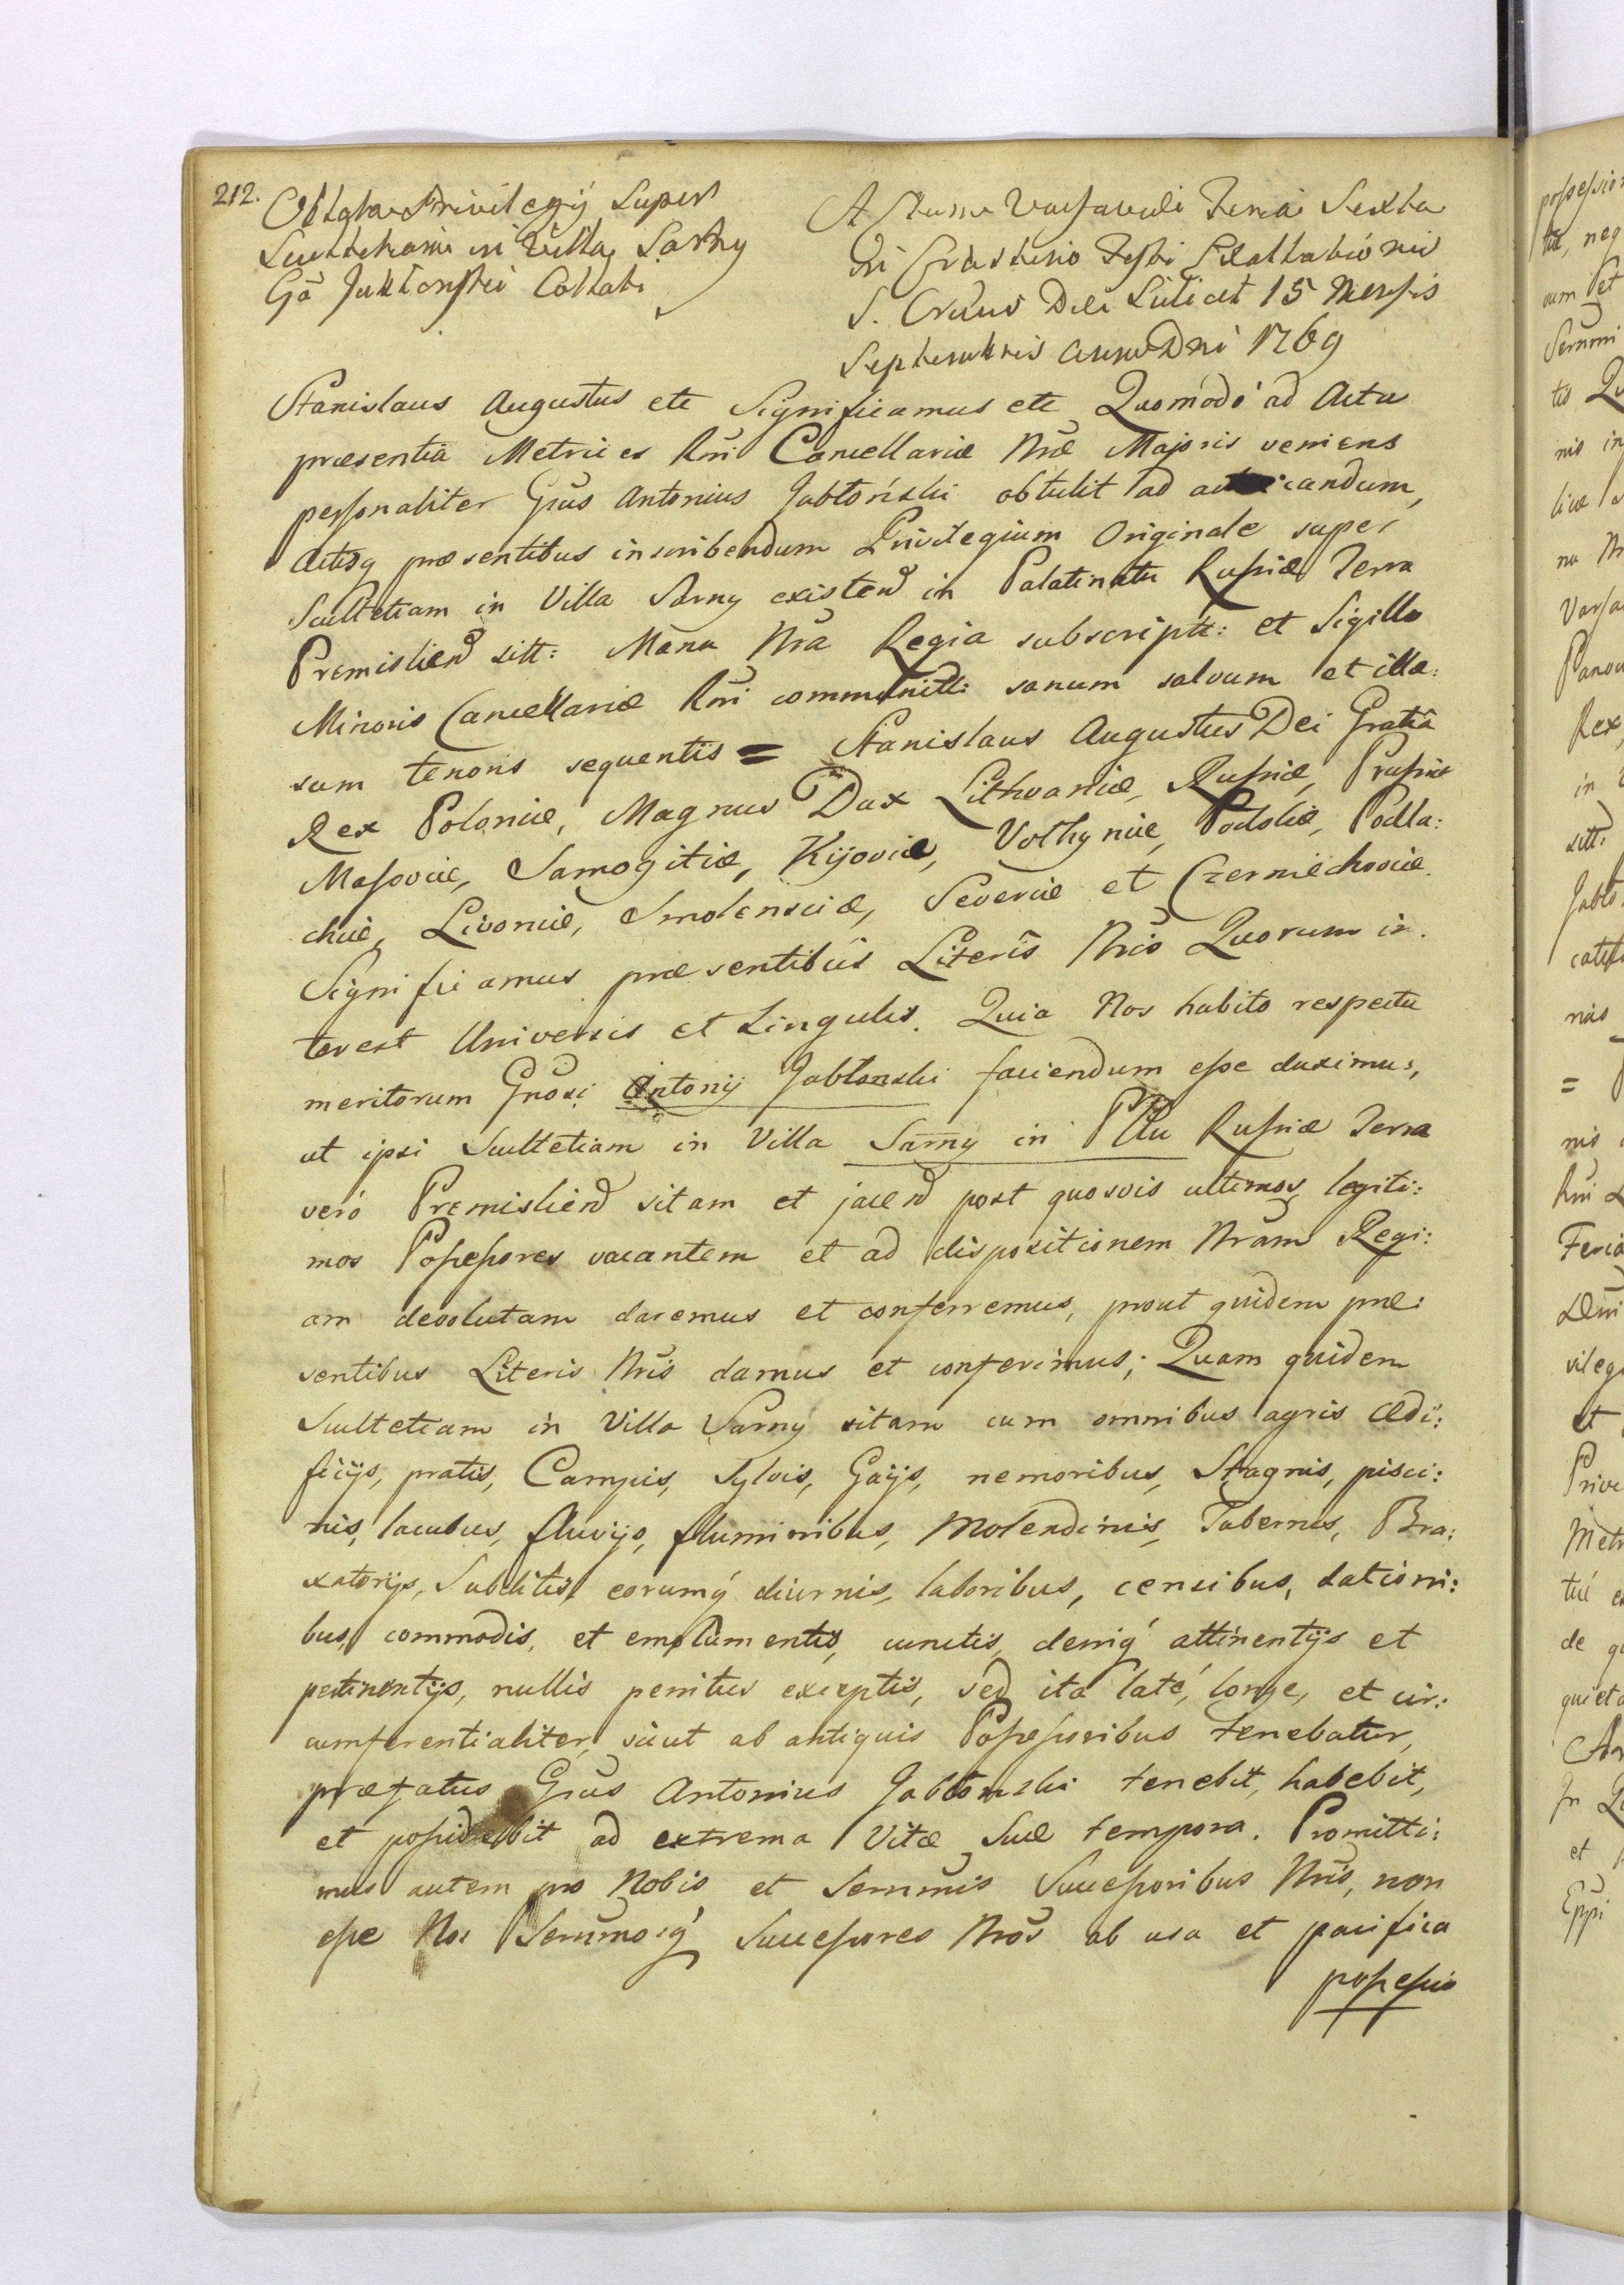 212.
Oblata Privilegij super
Scultetiam in Villa Sarny
Gō Jabłonski Collati
Actum Varsaviæ Feria Sexta
in Crastino Festi Exaltationis
S. Crucis Die Scilicet 15 Mensis
Septembris anno Dni 1769
Stanislaus Augustus etc Significamus etc Quomodó ad Acta
præsentia Metrices Rni Cancellariæ Nræ Majoris veniens
personaliter Gnus Antonius Jabłoński obtulit ad icandum,
Actisq præsentibus inscribendum Privilegium Originale super
Scultetiam in Villa Sarny existend in Palatinatu Russiæ Terra
Premisliend sitt: Manu Nra Regia subscriptt: et Sigillo
Minoris Cancellariæ Rni communitt: sanum salvum et illæ:
sum tenoris sequentis = Stanislaus Augustus Dei Gratia
Rex Poloniæ, Magnus Dux Lithvaniæ, Russiæ, Prussiæ
Masoviæ, Samogitiæ, Kijoviæ, Volhyniæ, Podoliæ, Podla:
chiæ, Livoniæ, Smolensciæ, Severiæ et Czerniechoviæ.
Significamus præsentibus Literis Nris Quorum in.
terest Universis et Singulis. Quia Nos habito respectu
meritorum Gnosi Antonij Jabłonski faciendum esse duximus,
ut ipsi Scultetiam in Villa Sarny in Pttu Russiæ Terra
veró Premisliend sitam et jacend post quosvis ultimos legiti:
mos Possessores vacantem et ad dispositionem Nram Regi:
am devolutam daremus et conferremus, prout quidem præ:
sentibus Literis Nris damus et conferimus; Quam quidem
Scultetiam in Villa Sarny sitam cum omnibus agris ædi:
ficijs, pratis, Campis, Sylvis, Gaijs, nemoribus, Stagnis, pisci:
nis, lacubus, fluvijs, fluminibus, Molendinis, Tabernis, Bra:
xatorijs, Subditis eorumq́ diurnis, laboribus, censibus, dationi:
bus, commodis, et emolumentis, cunctis, deniq́ attinentijs et
pertinentijs, nullis penitus exceptis, sed ita laté, longe, et cir:
cumferentialiter, sicut ab antiquis Possessoribus tenebatur,
præfatus Gnus Antonius Jabłonski tenebit, habebit,
et possidebit ad extrema Vitæ Suæ tempora. Promitti:
mus autem pro Nobis et Sernmis Successoribus Nris, non
esse Nos Sernmosq́ Successores Nros ab usu et pacifica
possessio